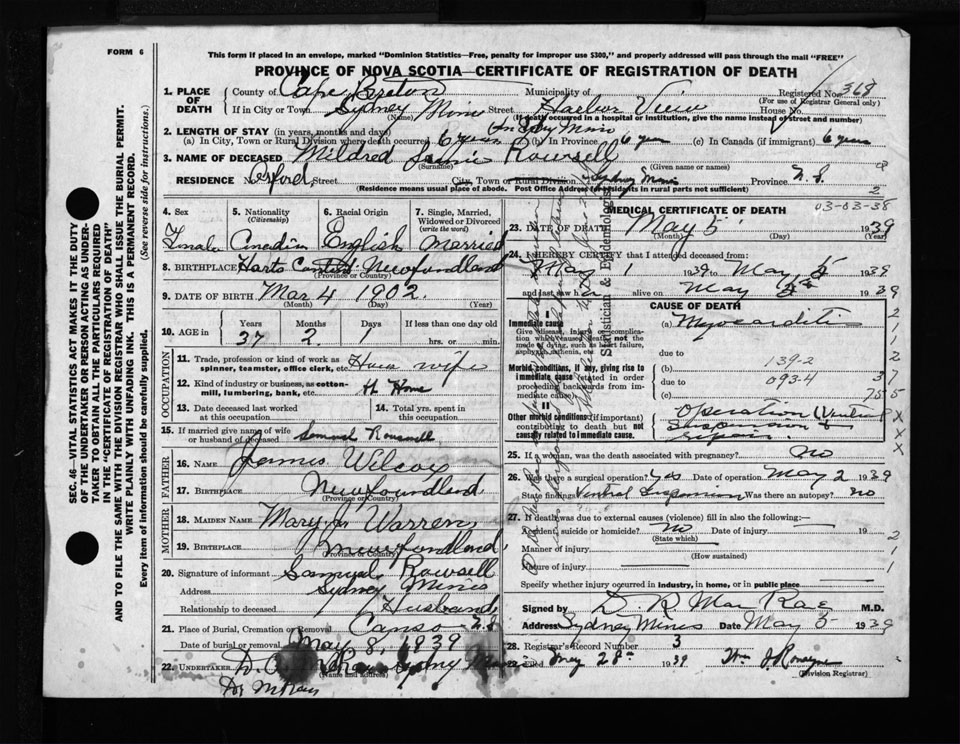 FORM 6
This form if placed in an envelope, marked "Dominion Statistics—Free, penalty for improper use $300," and properly addressed will pass through the mail "FREE"
PROVINCE OF NOVA SCOTIA—CERTIFICATE OF REGISTRATION OF DEATH
SEC. 46—VITAL STATISTICS ACT MAKES IT THE DUTY
OF THE UNDERTAKER OR PERSON ACTING AS UNDER-
TAKER TO OBTAIN ALL THE PARTICULARS REQUIRED
IN THE "CERTIFICATE OF REGISTRATION OF DEATH"
AND TO FILE THE SAME WITH THE DIVISION REGISTRAR WHO SHALL ISSUE THE BURIAL PERMIT.
WRITE PLAINLY WITH UNFADING INK. THIS IS A PERMANENT RECORD.
Every item of information should be carefully supplied. (See reverse side for instructions.)
1. PLACE OF DEATH
County of Cape Breton Municipality of Registered No. 368
(For use of Registrar General only)
If in City or Town Sydney Mines Street Harbor View House No.
(Name) (If death occurred in a hospital or institution, give the name instead of street and number)
2. LENGTH OF STAY (in years, months and days)
(a) In City, Town or Rural Division where death occurred 6 years (b) In Province 6 year (c) In Canada (if immigrant) 6 years
3. NAME OF DECEASED Mildred Rowsell
(Surname) (Given name or names)
RESIDENCE No. Oxford Street City, Town or Rural Division Sydney Mines Province N.S.
(Residence means usual place of abode. Post Office Address for residents in rural parts not sufficient)
8
2
4. Sex 5. Nationality (Citizenship) 6. Racial Origin 7. Single, Married, Widowed or Divorced (write the word)
Female Canadian English Married
8. BIRTHPLACE Harts Newfoundland
(Province or Country)
9. DATE OF BIRTH Mar 4 1902.
(Month) (Day) (Year)
10. AGE in Years Months Days If less than one day old
37 2 1 hrs. or min.
OCCUPATION
11. Trade, profession or kind of work as spinner, teamster, office clerk, etc. House wife
12. Kind of industry or business, as cotton-mill, lumbering, bank, etc. At Home
13. Date deceased last worked at this occupation
14. Total yrs. spent in this occupation
15. If married give name of wife or husband of deceased Samuel Rowsell
FATHER
16. NAME James Wilcox
17. BIRTHPLACE Newfoundland
(Province or Country)
MOTHER
18. MAIDEN NAME Mary J. Warren
19. BIRTHPLACE Newfoundland
(Province or Country)
20. Signature of informant Samuel Rowsell
Address Sydney Mines
Relationship to deceased Husband
21. Place of Burial, Cremation or Removal Canso N.S
Date of burial or removal May 8, 1939
22. UNDERTAKER Sydney Mines
(Name and address)
03-03-38
MEDICAL CERTIFICATE OF DEATH
23. DATE OF DEATH May 5 1939
(Month) (Day) (Year)
24. I HEREBY CERTIFY that I attended deceased from:
May 1 1939 to May 5 1939
and last saw her alive on May 5th 1939
CAUSE OF DEATH
Immediate cause
Give disease, injury or complication which caused death, not the mode of dying, such as heart failure, asphyxia, asthenia, etc.
(a) Myocarditis
due to
Morbid conditions, if any, giving rise to immediate cause (stated in order proceeding backwards from immediate cause)
(b) 139-2
due to 093-4
(c)
Other morbid conditions (if important) contributing to death but not causally related to immediate cause.
Operation (Ventral suspension & repair)
Statistician & Epidemiologist
25. If a woman, was the death associated with pregnancy? No
26. Was there a surgical operation? Yes Date of operation May 2 1939
State findings Ventral Suspension Was there an autopsy? No
27. If death was due to external causes (violence) fill in also the following:
Accident, suicide or homicide? No Date of injury 19
(State which)
Manner of injury
(How sustained)
Nature of injury
Specify whether injury occurred in industry, in home, or in public place
Signed by D. R. MacRae M.D.
Address Sydney Mines Date May 5 1939
28. Registrar's Record Number 3
Filed May 28th 1939
(Division Registrar)